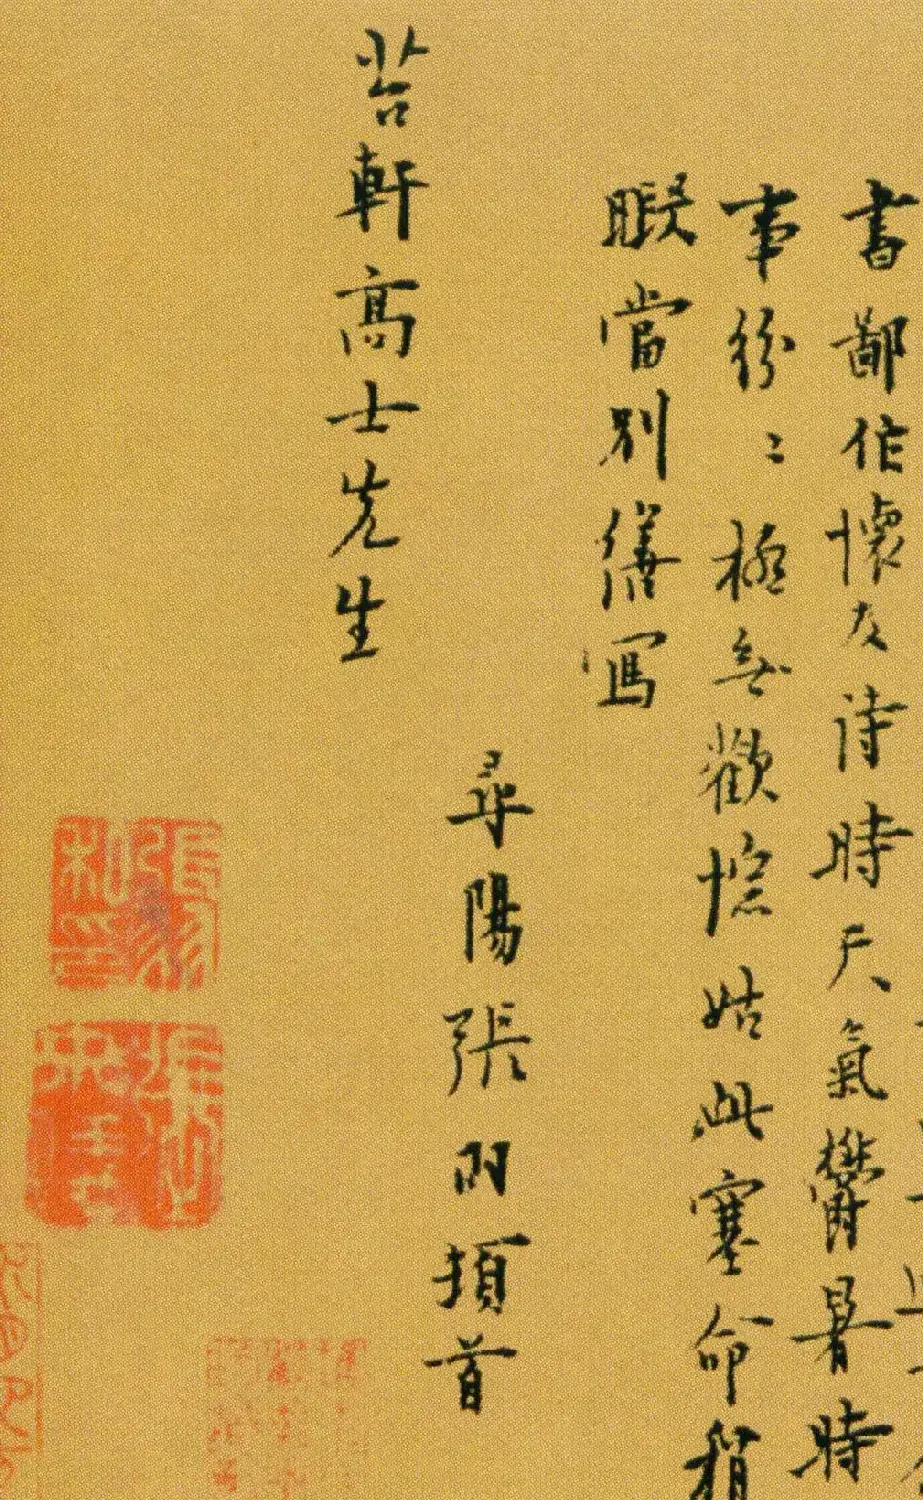 書鄙作懷友詩時天氣欝暑時
事紛〻極無歡悰姑此塞命稍
暇當別繕寫
尋陽張羽頓首
苔軒高士先生